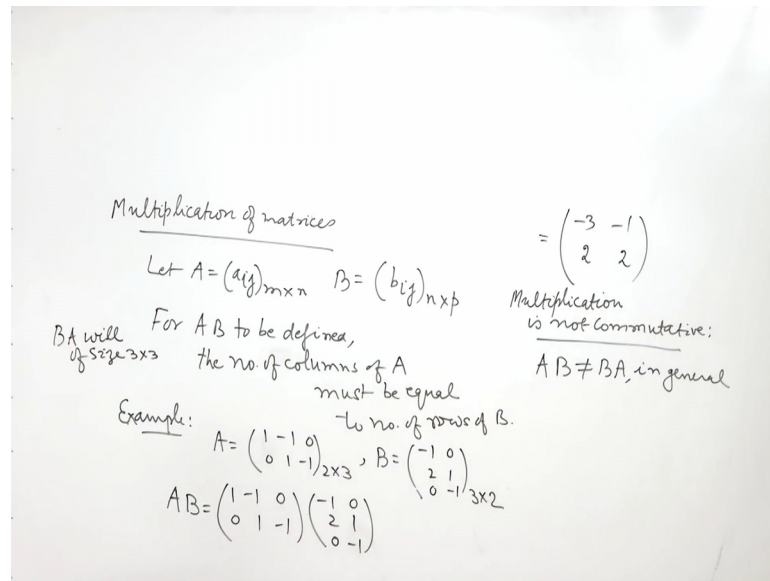 Multiplication of matrices
Let A = (aij)m×n B = (bij)n×p
For AB to be defined,
the no. of columns of A
must be equal
to no. of rows of B.
BA will
of size 3×3
Example:
A = (1 -1 0
0 1 -1)2×3 , B = (-1 0
2 1
0 -1)3×2
AB = (1 -1 0
0 1 -1) (-1 0
2 1
0 -1)
= (-3 -1
2 2)
Multiplication
is not commutative:
AB ≠ BA, in general